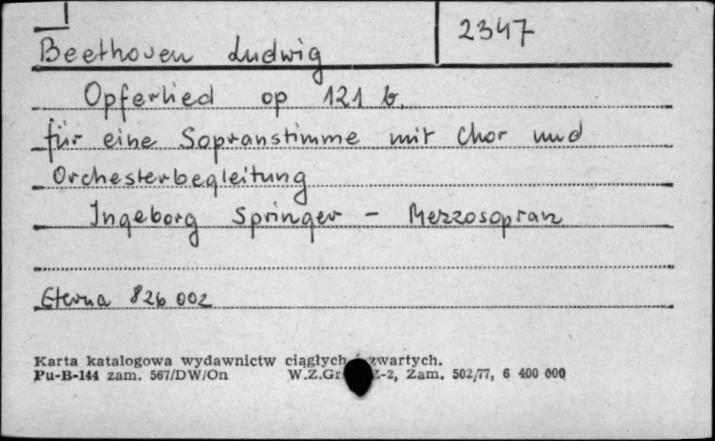 2347
Beethoven Ludwig
Opferlied op 121 b.
für eine Sopranstimme mit Chor und
Orchesterbegleitung
Ingeborg Springer - Mezzosopran
Eterna 826 002
Karta katalogowa wydawnictw ciągłych i zwartych.
Pu-B-144 zam. 567/DW/On W.Z.Gr Z-2, Zam. 502/77, 6 400 000